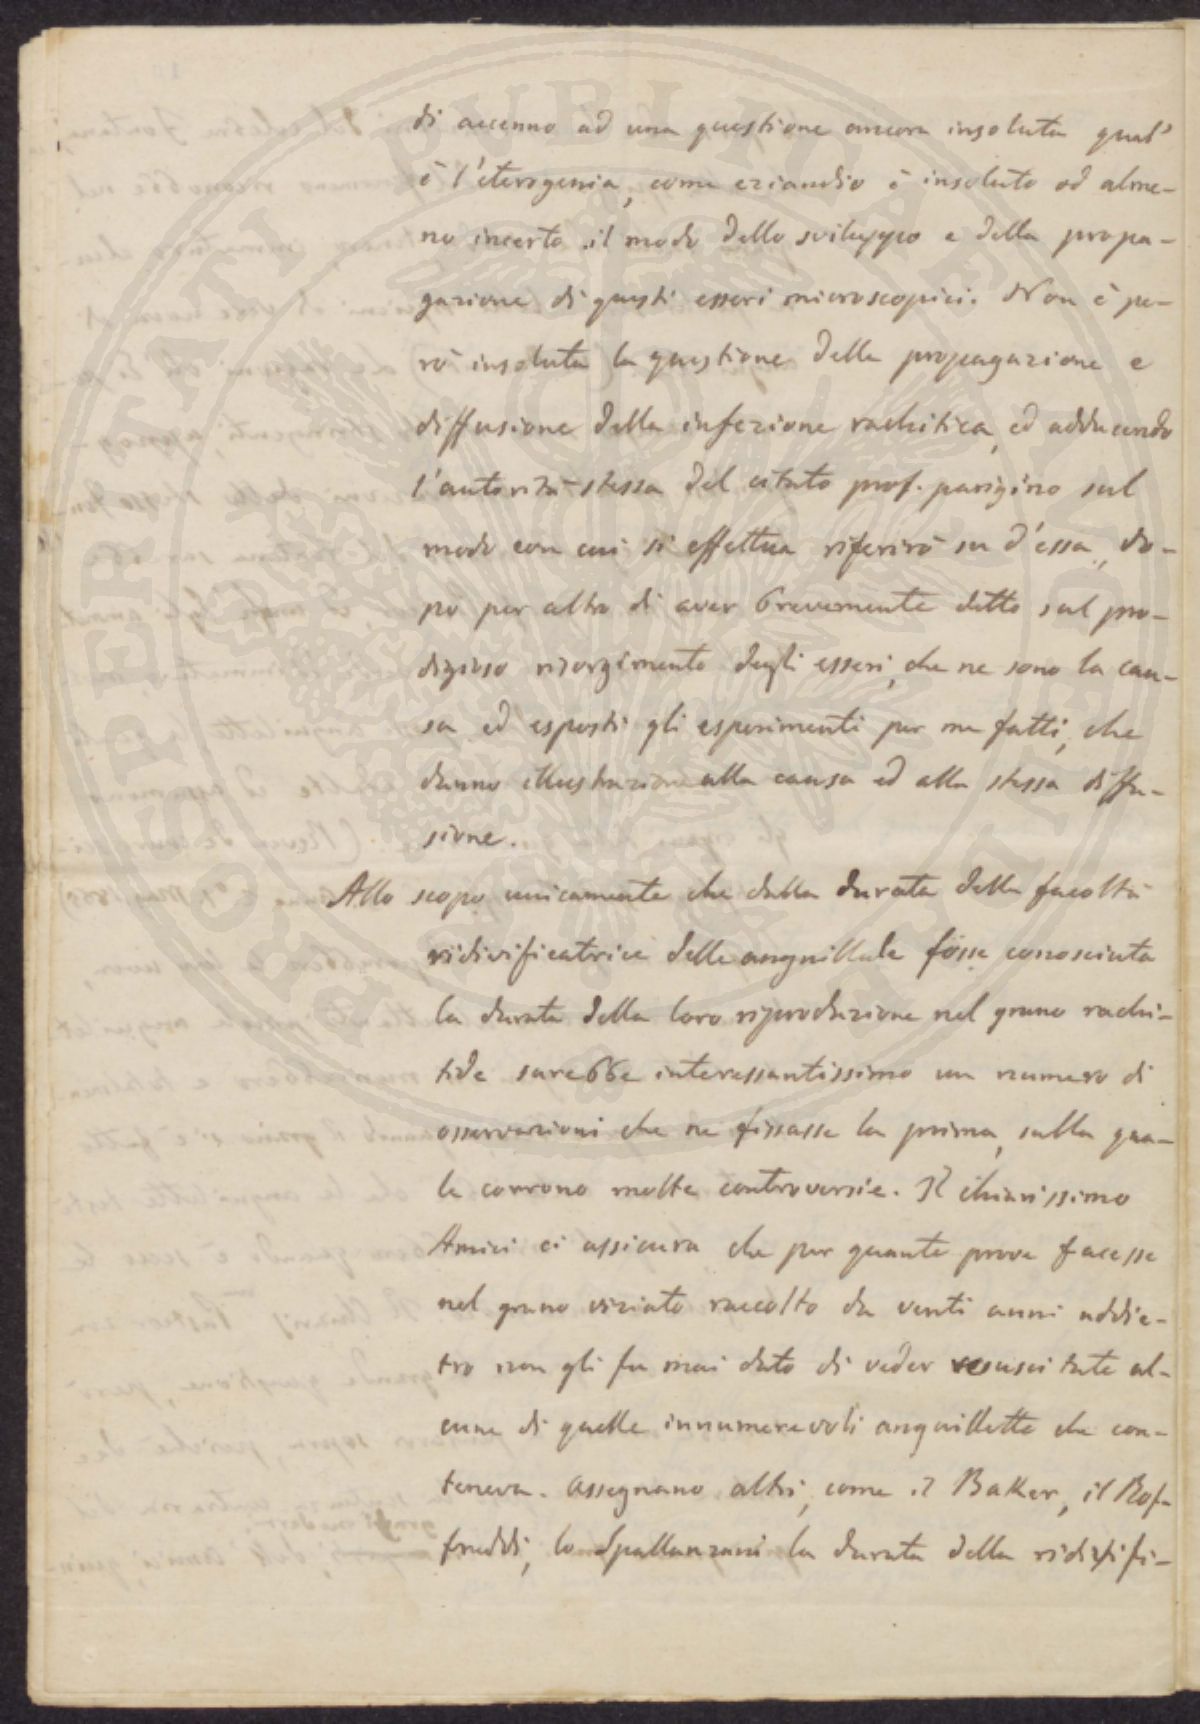 di accenno ad una questione ancora insoluta qual'
è l'eterogenia, come eziandio è insoluto od alme-
no incerto il modo dello sviluppo e della propa-
gazione di questi esseri microscopici. Non è pe-
rò insoluta la questione della propagazione e
diffusione della infezione rachitica, ed adducendo
l'autorità stessa del citato prof. parigino sul
modo con cui si effettua riferirò su d'essa, do-
po per altro di aver brevemente detto sul pro-
digioso risorgimento degli esseri, che ne sono la cau-
sa ed esposti gli esperimenti per me fatti, che
danno illustrazione alla causa ed alla stessa diffu-
sione.
Allo scopo unicamente che dalla durata della facoltà
ridivificatrice delle anguillule fosse conosciuta
la durata della loro riproduzione nel grano rachi-
tide sarebbe interessantissimo un numero di
osservazioni che ne fissasse la prima, sulla qua-
le corrono molte controversie. Il chiarissimo
Amici ci assicura che per quante prove facesse
nel grano viziato raccolto da venti anni addie-
tro non gli fu mai dato di veder resuscitate al-
cune di quelle innumerevoli anguillette che con-
teneva. Assegnano altri, come il Baker, il Rof-
freddi, lo Spallanzani la durata della ridivifi-
PROSPERITATI PVBLICAE AVGENDAE